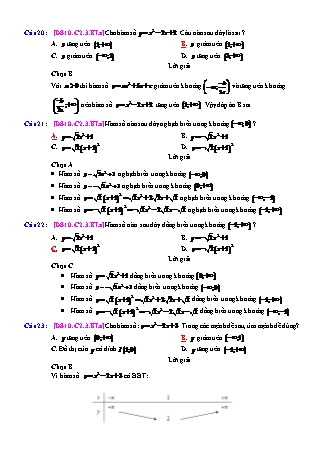 Câu 20: [DS10.C2.3.BT.a] Cho hàm số y = x² - 2x + 2. Câu nào sau đây là sai?
A. y tăng trên (1;+∞). B. y giảm trên (1;+∞).
C. y giảm trên (-∞;1). D. y tăng trên (3;+∞).
Lời giải
Chọn B
Với a > 0 thì hàm số y = ax² + bx + c giảm trên khoảng (-∞; -b/2a) và tăng trên khoảng
(-b/2a; +∞) nên hàm số y = x² - 2x + 2 tăng trên (1;+∞). Vậy đáp án B sai.
Câu 21: [DS10.C2.3.BT.a] Hàm số nào sau đây nghịch biến trong khoảng (-∞;0)?
A. y = √2x² + 1 B. y = -√2x² + 1
C. y = √2(x+1)² D. y = -√2(x+1)²
Lời giải
Chọn A
Hàm số nghịch biến trong khoảng (-∞;0)
Hàm số nghịch biến trong khoảng (0;+∞)
Hàm số y = √2(x+1)² nghịch biến trong khoảng (-∞;-1)
Hàm số y = -√2(x+1)² nghịch biến trong khoảng (-1;+∞)
Câu 22: [DS10.C2.3.BT.a] Hàm số nào sau đây đồng biến trong khoảng (-1;+∞)?
A. y = √2x² + 1 B. y = -√2x² + 1
C. y = √2(x+1)² D. y = -√2(x+1)²
Lời giải
Chọn C
Hàm số y = √2x² + 1 đồng biến trong khoảng (0;+∞)
Hàm số đồng biến trong khoảng (-∞;0)
Hàm số y = √2(x+1)² đồng biến trong khoảng (-1;+∞)
Hàm số y = -√2(x+1)² đồng biến trong khoảng (-∞;-1)
Câu 23: [DS10.C2.3.BT.a] Cho hàm số: y = x² - 2x + 3. Trong các mệnh đề sau, tìm mệnh đề đúng?
A. y tăng trên (0;+∞). B. y giảm trên (-∞;1).
C. Đồ thị của y có đỉnh I(1;0). D. y tăng trên (-1;+∞).
Lời giải
Chọn B
Vì hàm số y = x² - 2x + 3 có BBT:
x -∞ 1 +∞
+∞ +∞
y
2